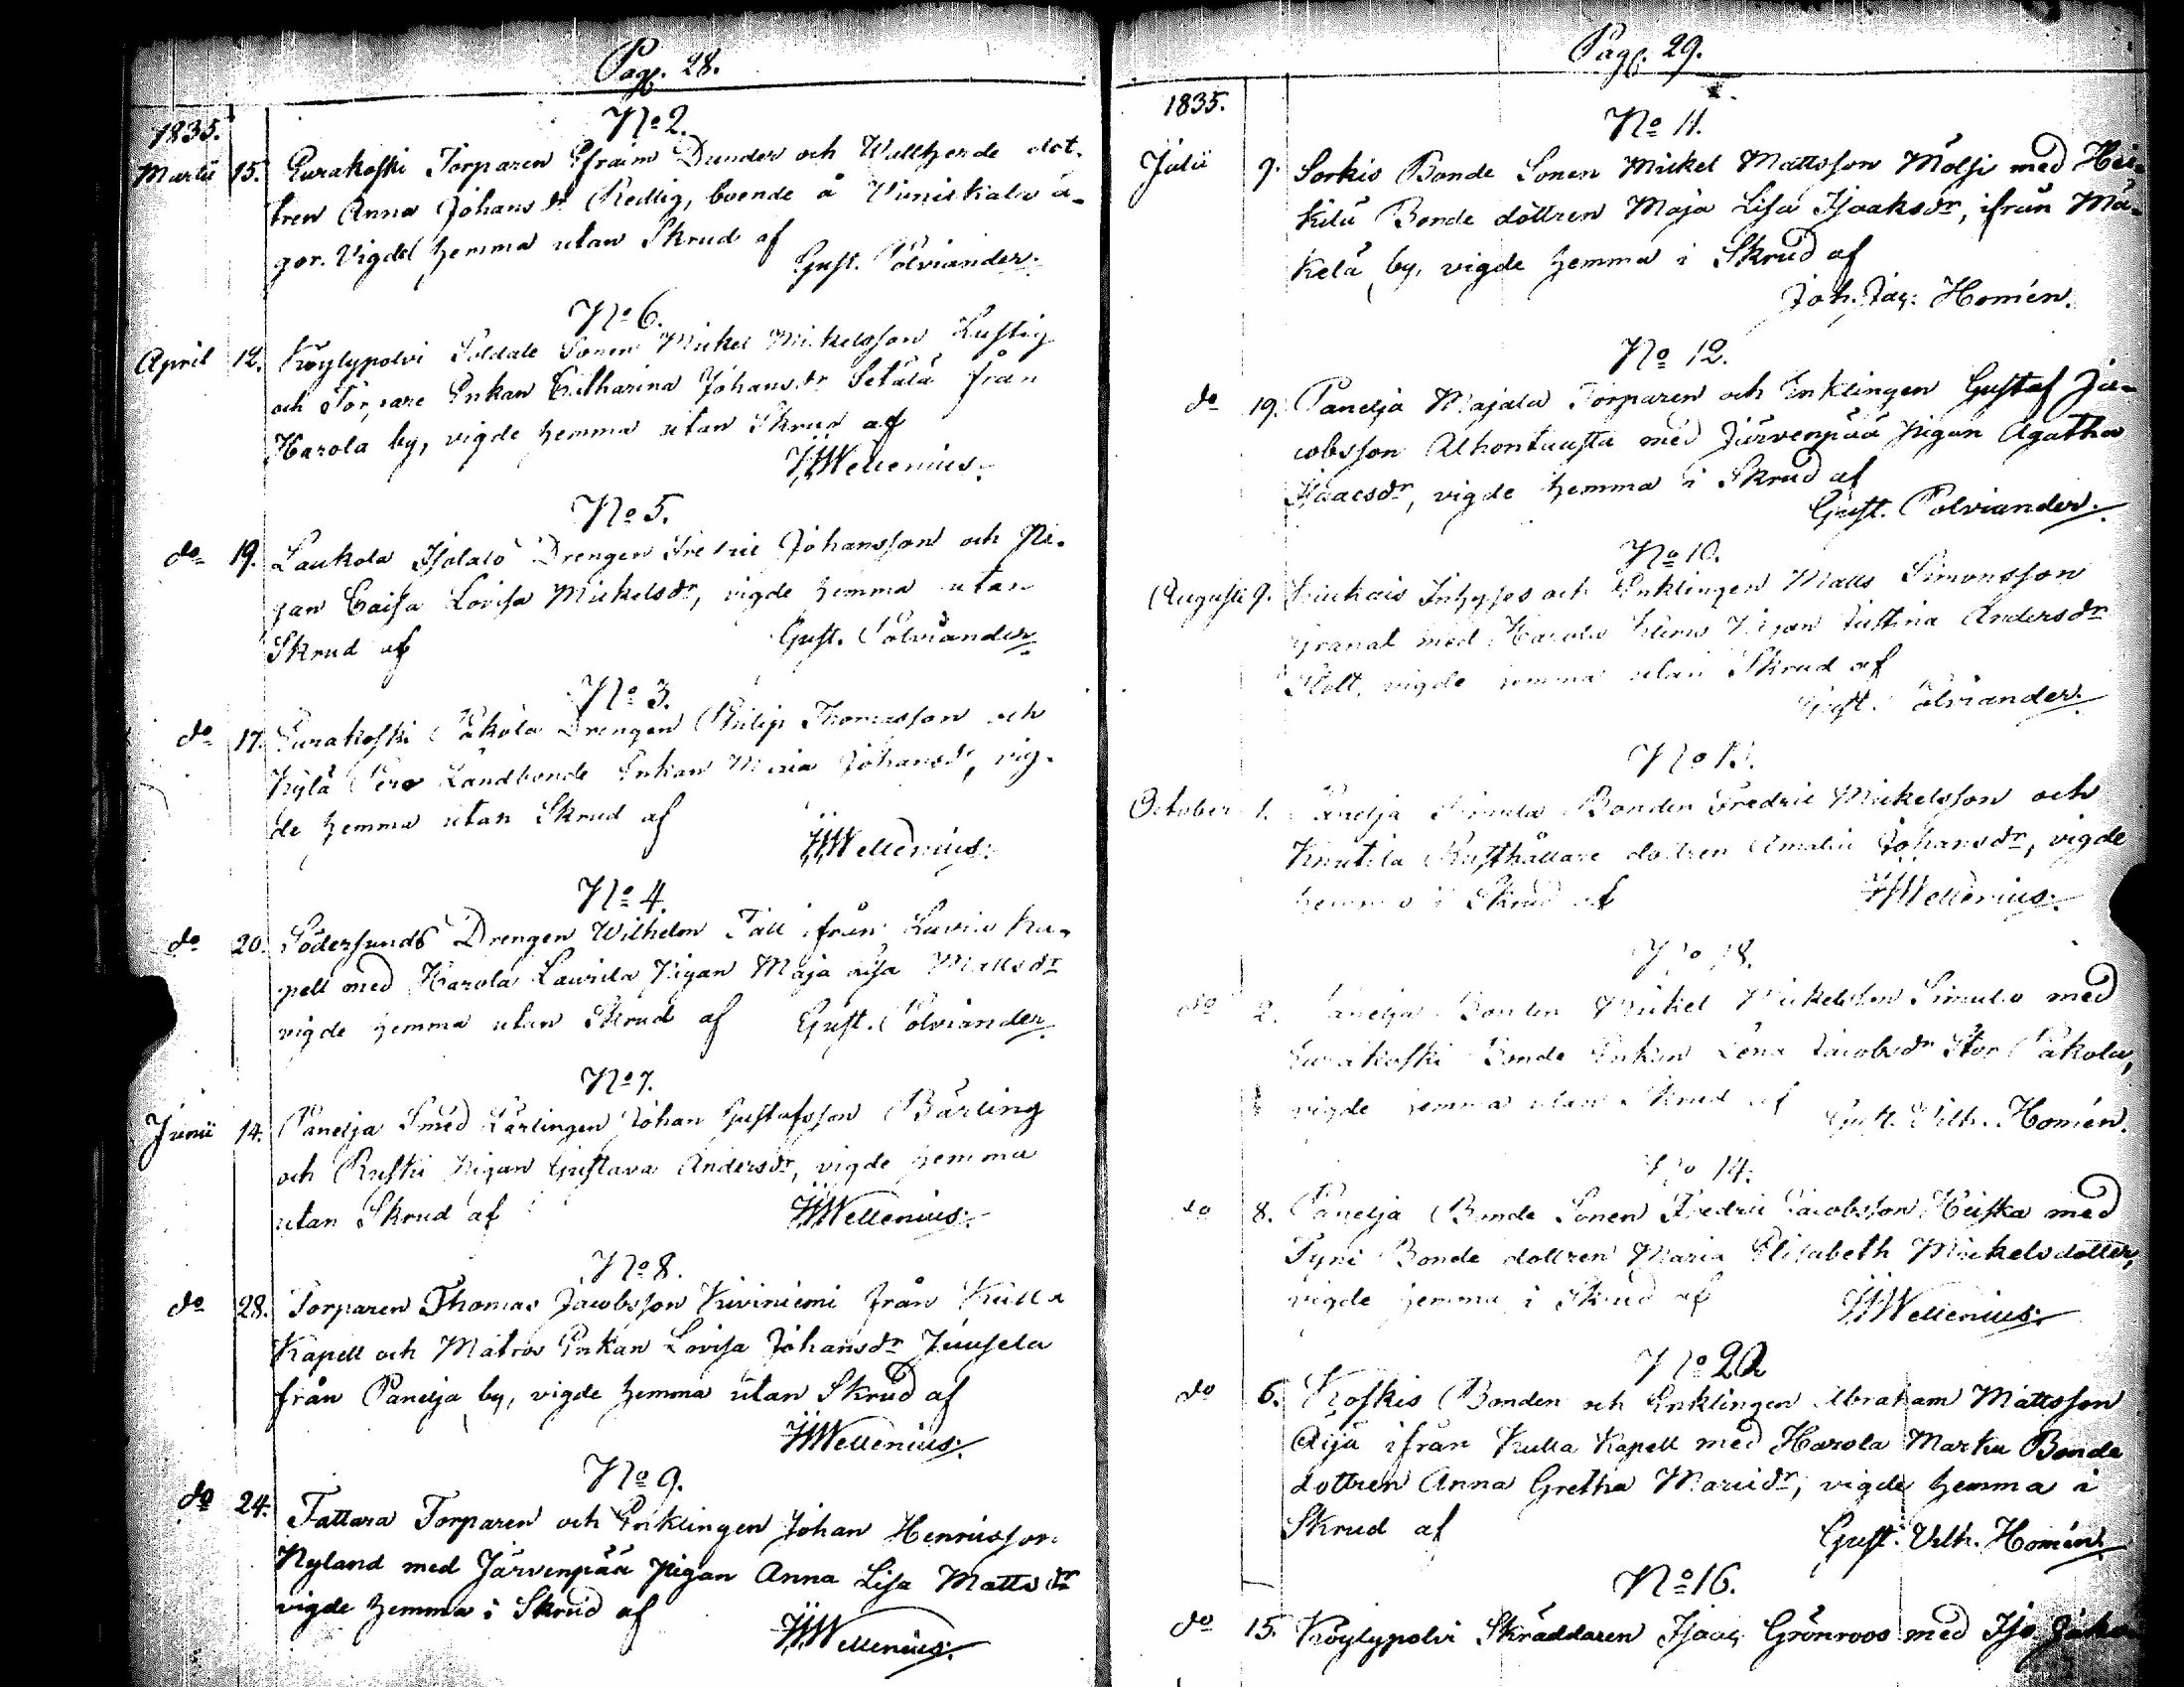 Pag. 28.
1835.
No 2.
Martii 15. Eurakoski Torparen Efraim Dunder och Wallherde dot-
tren Anna Johansdr Redlig, boende å ä-
gor. Vigde hemma utan Skrud af
Gust. Polviander.
No 6.
April 12. Köylypolvi Soldate Sonen Mickel Mickelsson Lustig
och Torpare Enkan Catharina Johansdr Setälä från
Harola by, vigde hemma utan Skrud af
Wellenius.
No 5.
do 19. Laukola Isotalo Drengen Fredric Johansson och Pi-
gan Caisa Lovisa Mickelsdr, vigde hemma utan
Skrud af
Gust. Polviander
No 3.
do 17. Eurakoski Päkola Drengen Philip Thomasson och
Kylä Pero Landbonde Enkan Maria Johansdr, vig-
de hemma utan Skrud af
Wellenius.
No 4.
do 20. Södersunds Drengen Wilhelm Tall ifrån Luvia Ka-
pell med Harola Laurila Pigan Maja Lisa Mattsdr
vigde hemma utan Skrud af Gust. Polviander
No 7.
Junii 14. Panelja Smed Lärlingen Johan Gustafsson Bärling
och Ruski Pigan Gustava Andersdr, vigde hemma
utan Skrud af
Wellenius.
No 8.
do 28. Torparen Thomas Jacobsson Kiviniemi från Kulla
Kapell och Matros Enkan Lovisa Johansdr Juusela
från Panelja by, vigde hemma utan Skrud af
Wellenius.
No 9.
do 24. Tattara Torparen och Enklingen Johan Henricsson
Nyland med Järvenpää pigan Anna Lisa Mattsdr
vigde hemma i Skrud af
Wellenius.
Pag. 29.
1835.
No 11.
Julii 9. Sorkis Bonde Sonen Mickel Mattsson Mölsi med Hei-
kilä Bonde dottren Maja Lisa Isaaksdr, ifrån Mä-
kelä by, vigde hemma i Skrud af
Joh. Jac. Homén.
No 12.
do 19. Panelja Majala Torparen och Enklingen Gustaf Ja-
cobsson Alhontausta med Järvenpää pigan Agatha
Isaacsdr, vigde hemma i Skrud af
Gust. Polviander.
No 10.
Augusti 9. Inhyses och Enklingen Matts Simonsson
Granat med Harola Pigan Justina Andersdr
Stolt, vigde hemma utan Skrud af
Gust. Polviander.
No 13.
October 1. Panelja Simula Bonden Fredric Mickelsson och
Knutila Rusthållare dottren Amalia Johansdr, vigde
hemma i Skrud af
Wellenius.
No 18.
do 2. Panelja Bonden Mickel Mickelsson Simula med
Eurakoski Bonde Enkan Lena Jacobsdr Stor Päkola,
vigde hemma utan Skrud af Gust. Vilh. Homén.
No 14.
do 8. Panelja Bonde Sonen Fredric Jacobsson Heiska med
Pyni Bonde dottren Maria Elisabeth Mickelsdotter,
vigde hemma i Skrud af
Wellenius.
No 20
do 6. Koskis Bonden och Enklingen Abraham Mattsson
Äijä ifrån Kulla Kapell med Harola Marku Bonde
dottren Anna Gretha , vigde hemma i
Skrud af
Gust. Vilh. Homén.
No 16.
do 15. Köylypolvi Skräddaren Isaac Grönroos med Iso